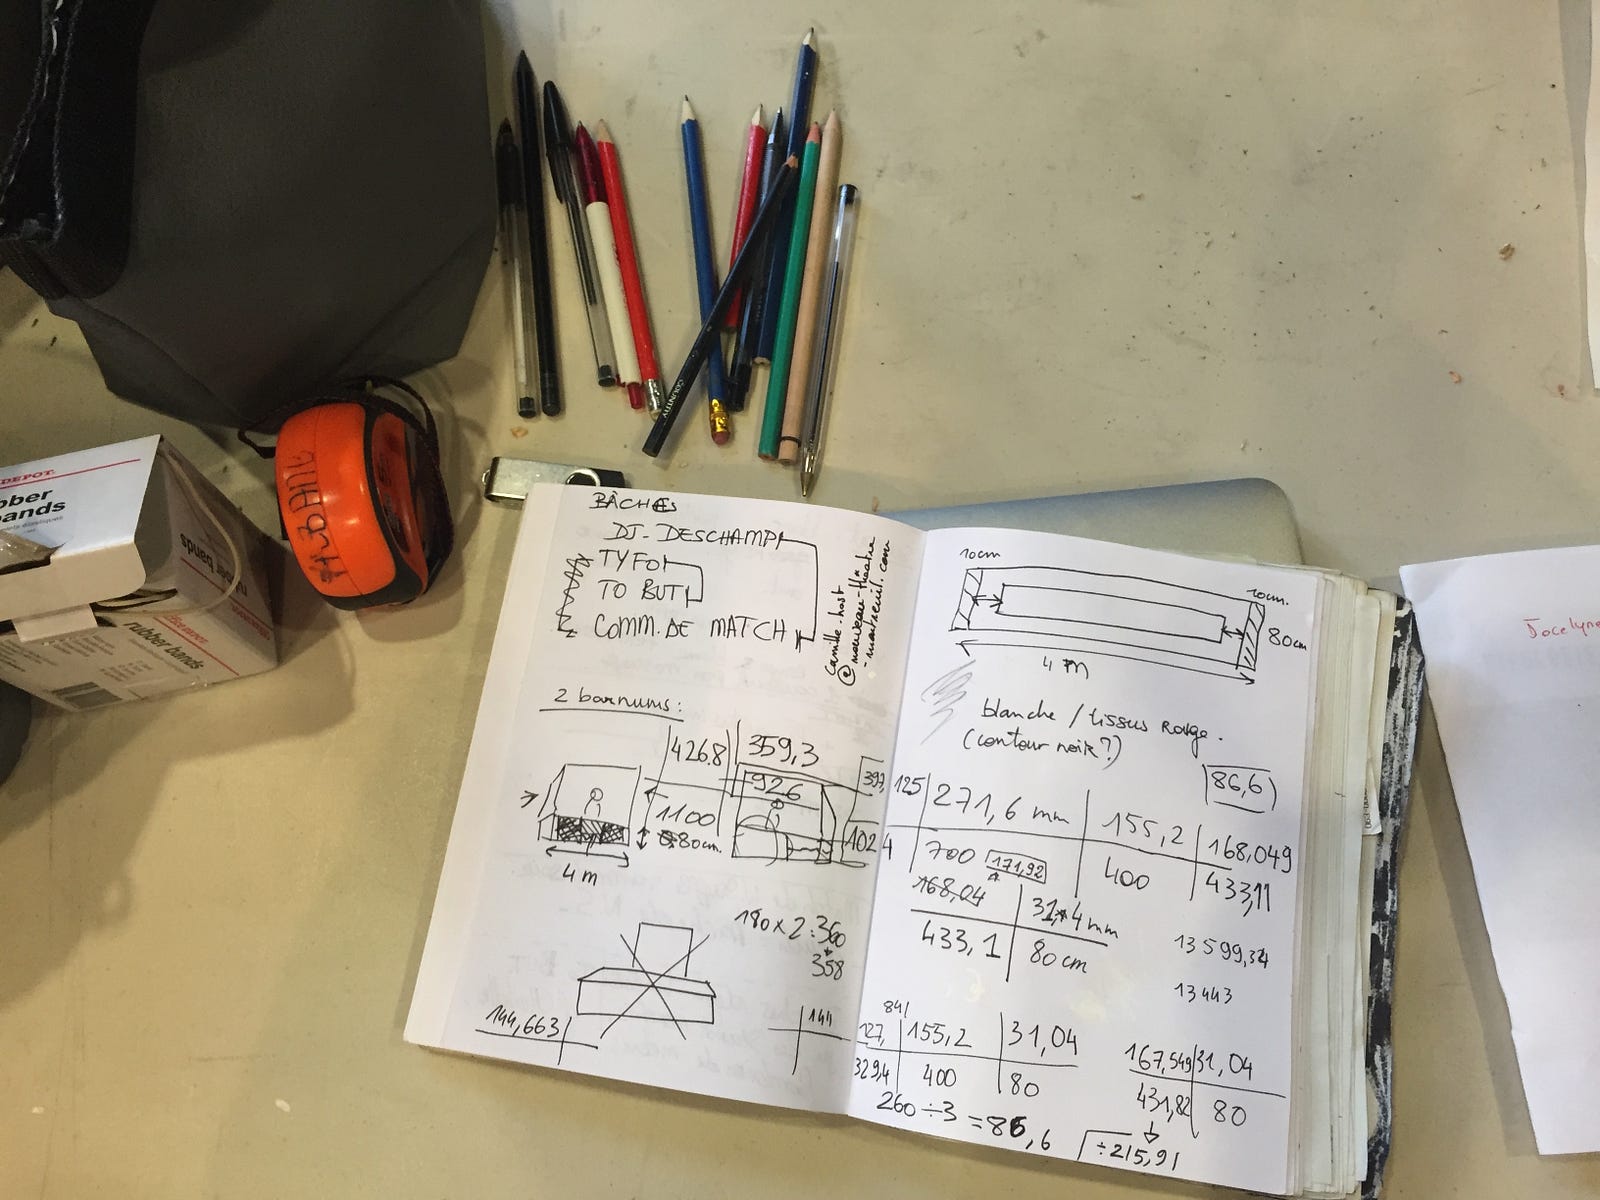 BÂCHES
DJ-DESCHAMP
TYFO
TO BUT
COMM. DE MATCH
camille.host
@nouveau-théatre
-montreuil.com
2 barnums:
426.8 359,3
926
1100
80cm.
4 m
397,
102
180 x 2 = 360
358
144,663
144
10cm
10cm.
80cm
4 m
blanche / tissus rouge.
(contour noir?)
86,6
125 271,6 mm 155,2 168,049
4 700 171,92 400 433,11
168,04 31,4 mm
433,1 80 cm
13 599,34
13443
841
127, 155,2 31,04
329,4 400 80
260 ÷ 3 = 86,6
167,549 31,04
431,82 80
÷ 215,91
DEPOT
rubber bands
rubber bands
COUNTRY
Jocelyne